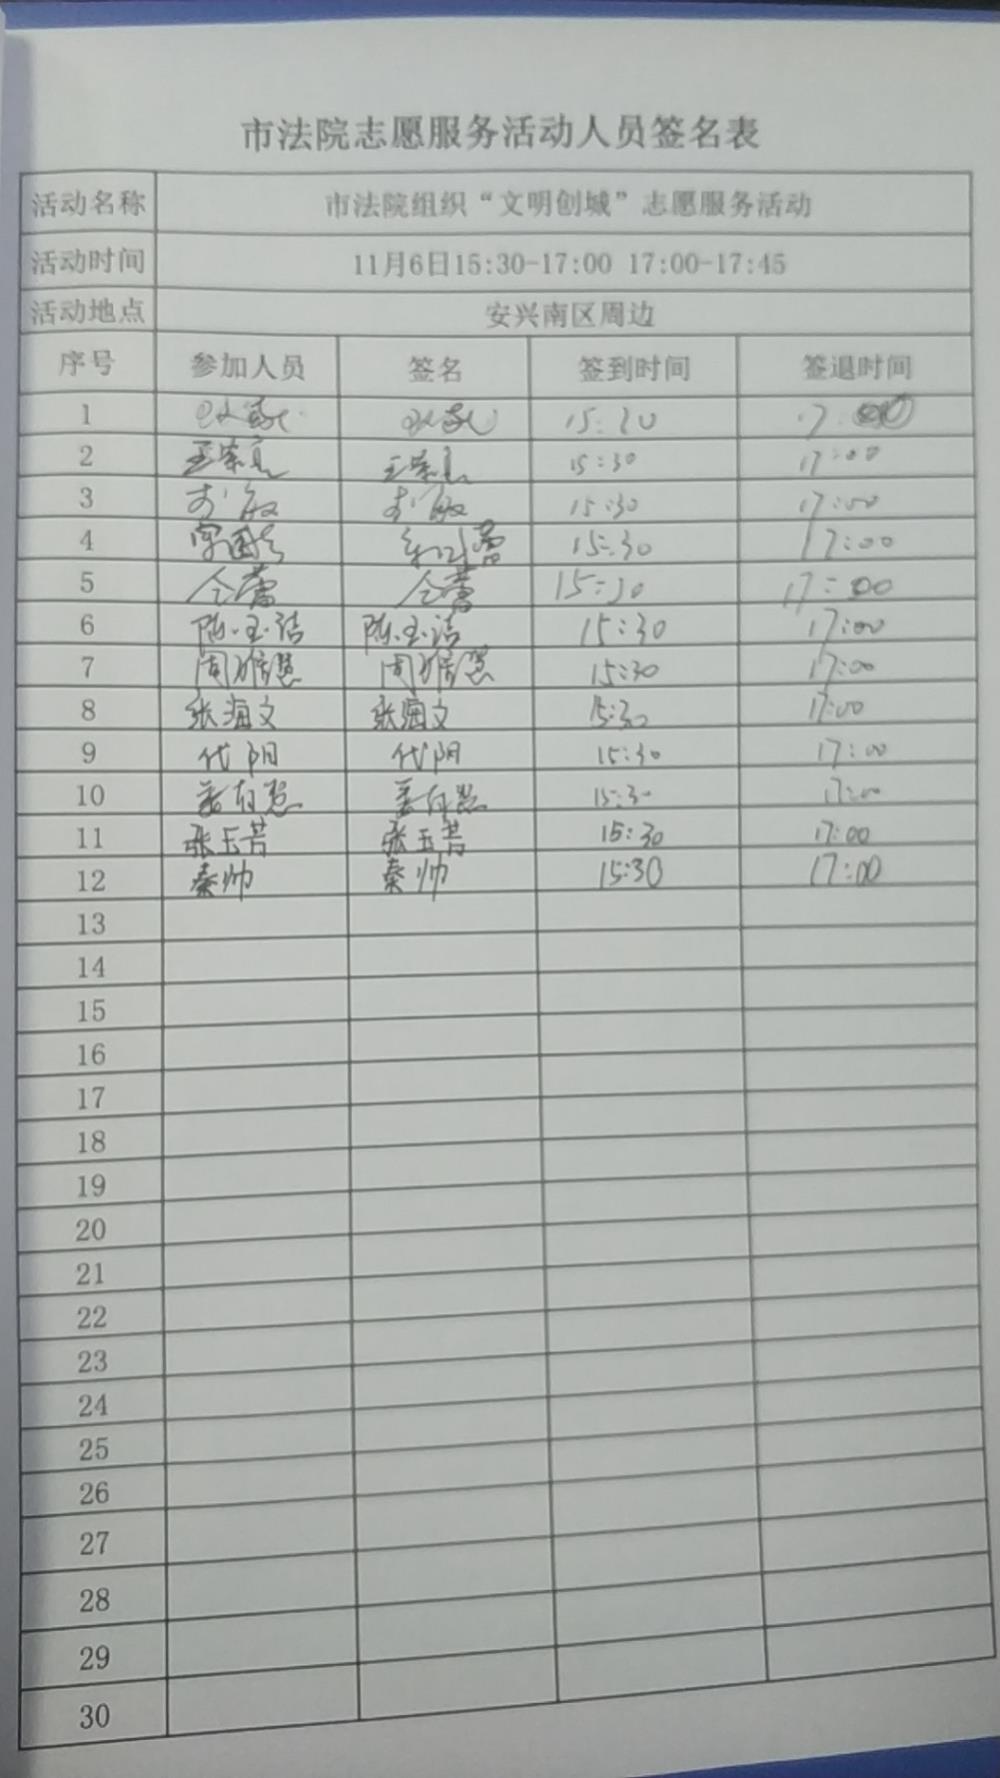 市法院志愿服务活动人员签名表
活动名称 市法院组织“文明创城”志愿服务活动
活动时间 11月6日15:30-17:00 17:00-17:45
活动地点 安兴南区周边
序号 参加人员 签名 签到时间 签退时间
1 15:30 17:
2 15:30 17:00
3 15:30 17:00
4 15:30 17:00
5 仝蕾 仝蕾 15:30 17:00
6 陈玉洁 陈玉洁 15:30 17:00
7 周雅慧 周雅慧 15:30 17:00
8 张海文 张海文 15:30 17:00
9 代阴 代阴 15:30 17:00
10 15:30 17:00
11 张玉芳 张玉芳 15:30 17:00
12 秦帅 秦帅 15:30 17:00
13
14
15
16
17
18
19
20
21
22
23
24
25
26
27
28
29
30